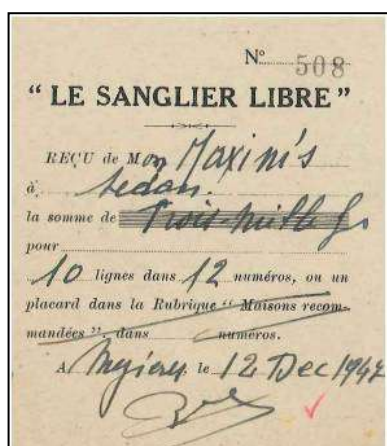 N° 508
"LE SANGLIER LIBRE"
REÇU de Mon Maxini's
à Sedan.
la somme de Trois mille f
pour
10 lignes dans 12 numéros, ou un
placard dans la Rubrique "Maisons recom-
mandées", dans numéros.
A le 12 Dec 1947